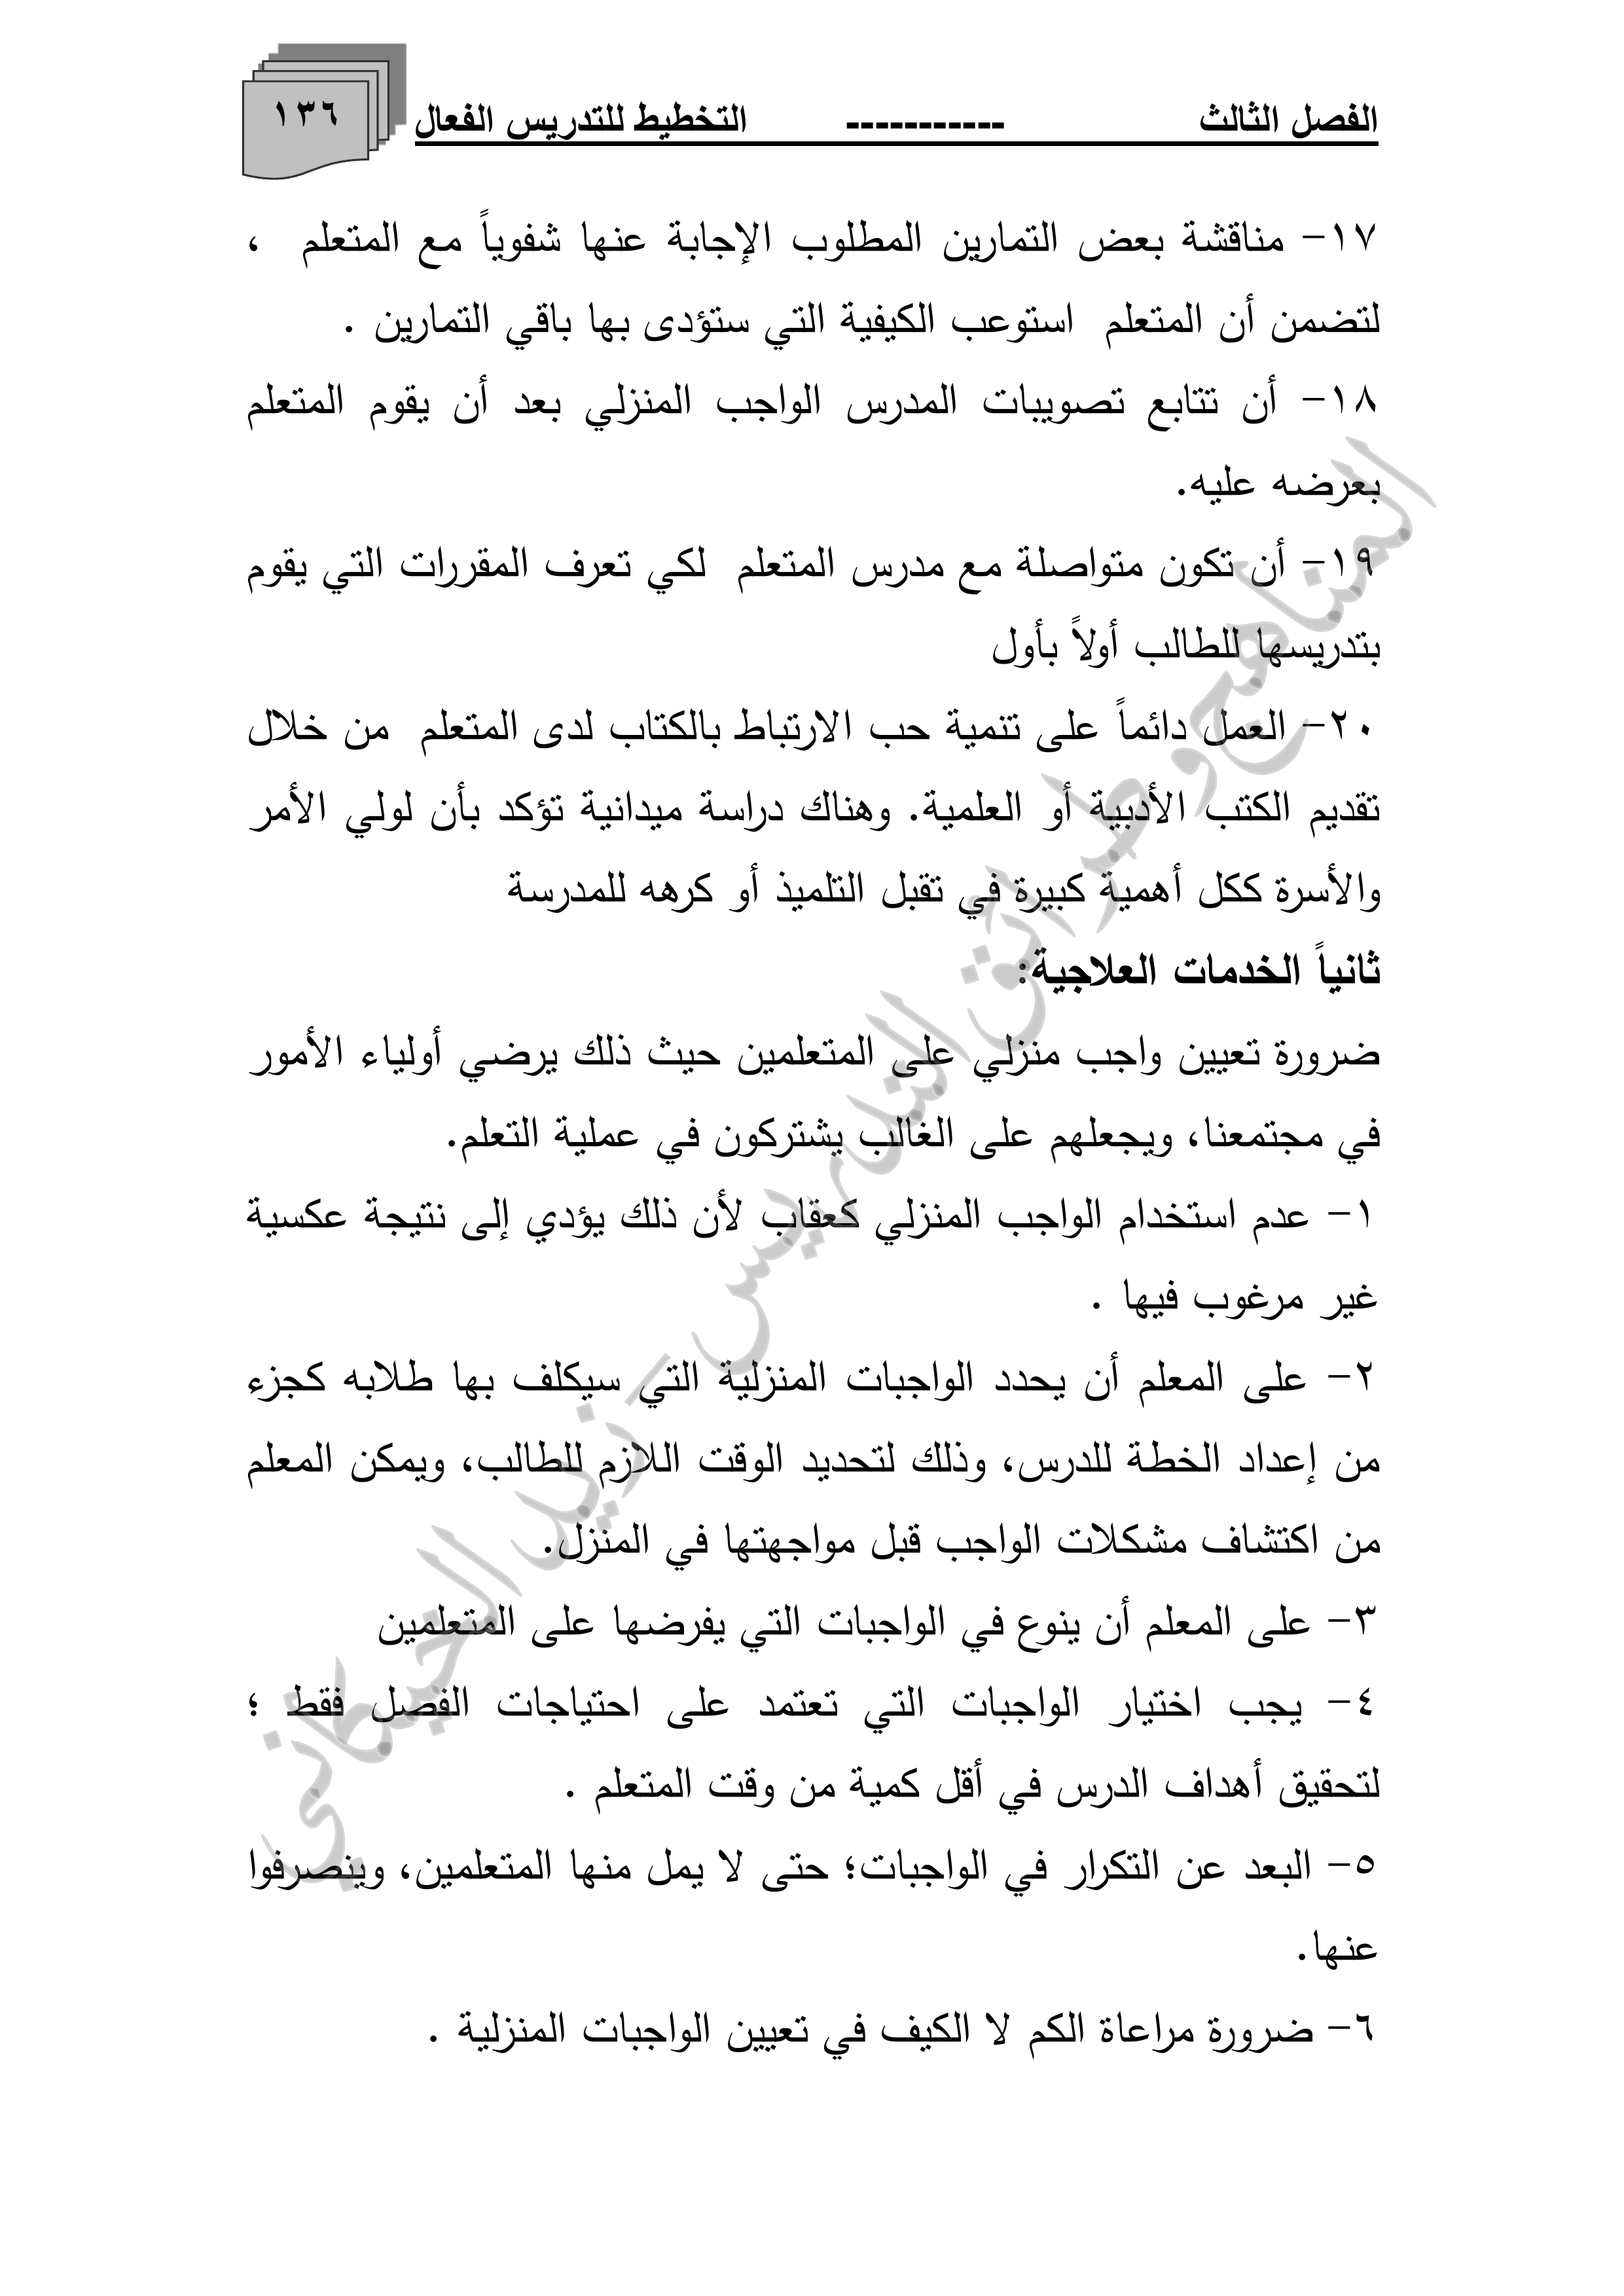 الفصل الثالث ----------- التخطيط للتدريس الفعال
١٣٦
١٧- مناقشة بعض التمارين المطلوب الإجابة عنها شفوياً مع المتعلم ،
لتضمن أن المتعلم استوعب الكيفية التي ستؤدى بها باقي التمارين .
١٨- أن تتابع تصويبات المدرس الواجب المنزلي بعد أن يقوم المتعلم
بعرضه عليه.
١٩- أن تكون متواصلة مع مدرس المتعلم لكي تعرف المقررات التي يقوم
بتدريسها للطالب أولاً بأول
٢٠- العمل دائماً على تتمية حب الارتباط بالكتاب لدى المتعلم من خلال
تقديم الكتب الأدبية أو العلمية. وهناك دراسة ميدانية تؤكد بأن لولي الأمر
والأسرة ككل أهمية كبيرة في تقبل التلميذ أو كرهه للمدرسة
ثانياً الخدمات العلاجية:
ضرورة تعيين واجب منزلي على المتعلمين حيث ذلك يرضي أولياء الأمور
في مجتمعنا، ويجعلهم على الغالب يشتركون في عملية التعلم.
١- عدم استخدام الواجب المنزلي كعقاب لأن ذلك يؤدي إلى نتيجة عكسية
غير مرغوب فيها .
٢- على المعلم أن يحدد الواجبات المنزلية التي سيكلف بها طلابه كجزء
من إعداد الخطة للدرس، وذلك لتحديد الوقت اللازم للطالب، ويمكن المعلم
من اكتشاف مشكلات الواجب قبل مواجهتها في المنزل.
٣- على المعلم أن ينوع في الواجبات التي يفرضها على المتعلمين
٤- يجب اختيار الواجبات التي تعتمد على احتياجات الفصل فقط ؛
لتحقيق أهداف الدرس في أقل كمية من وقت المتعلم .
٥- البعد عن التكرار في الواجبات؛ حتى لا يمل منها المتعلمين، وينصرفوا
عنها.
٦- ضرورة مراعاة الكم لا الكيف في تعيين الواجبات المنزلية .
المناهج وطرائق التدريس - زيد الخيكاني